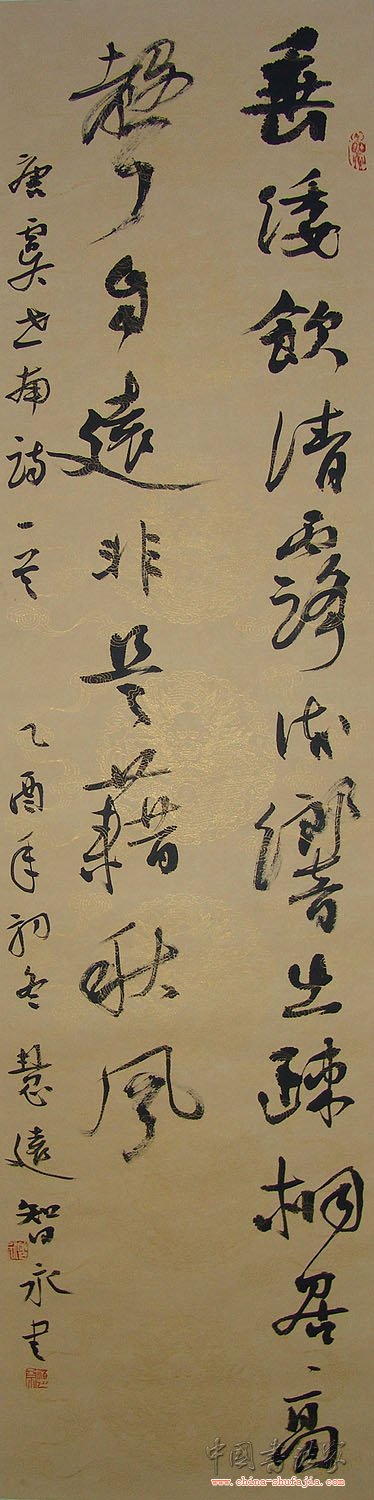 垂緌飲清露流響出疎桐居高
聲自遠非是藉秋風
唐虞世南詩一首 乙酉年初冬 慧遠智永書
中國書法家
www.china-shufajia.com